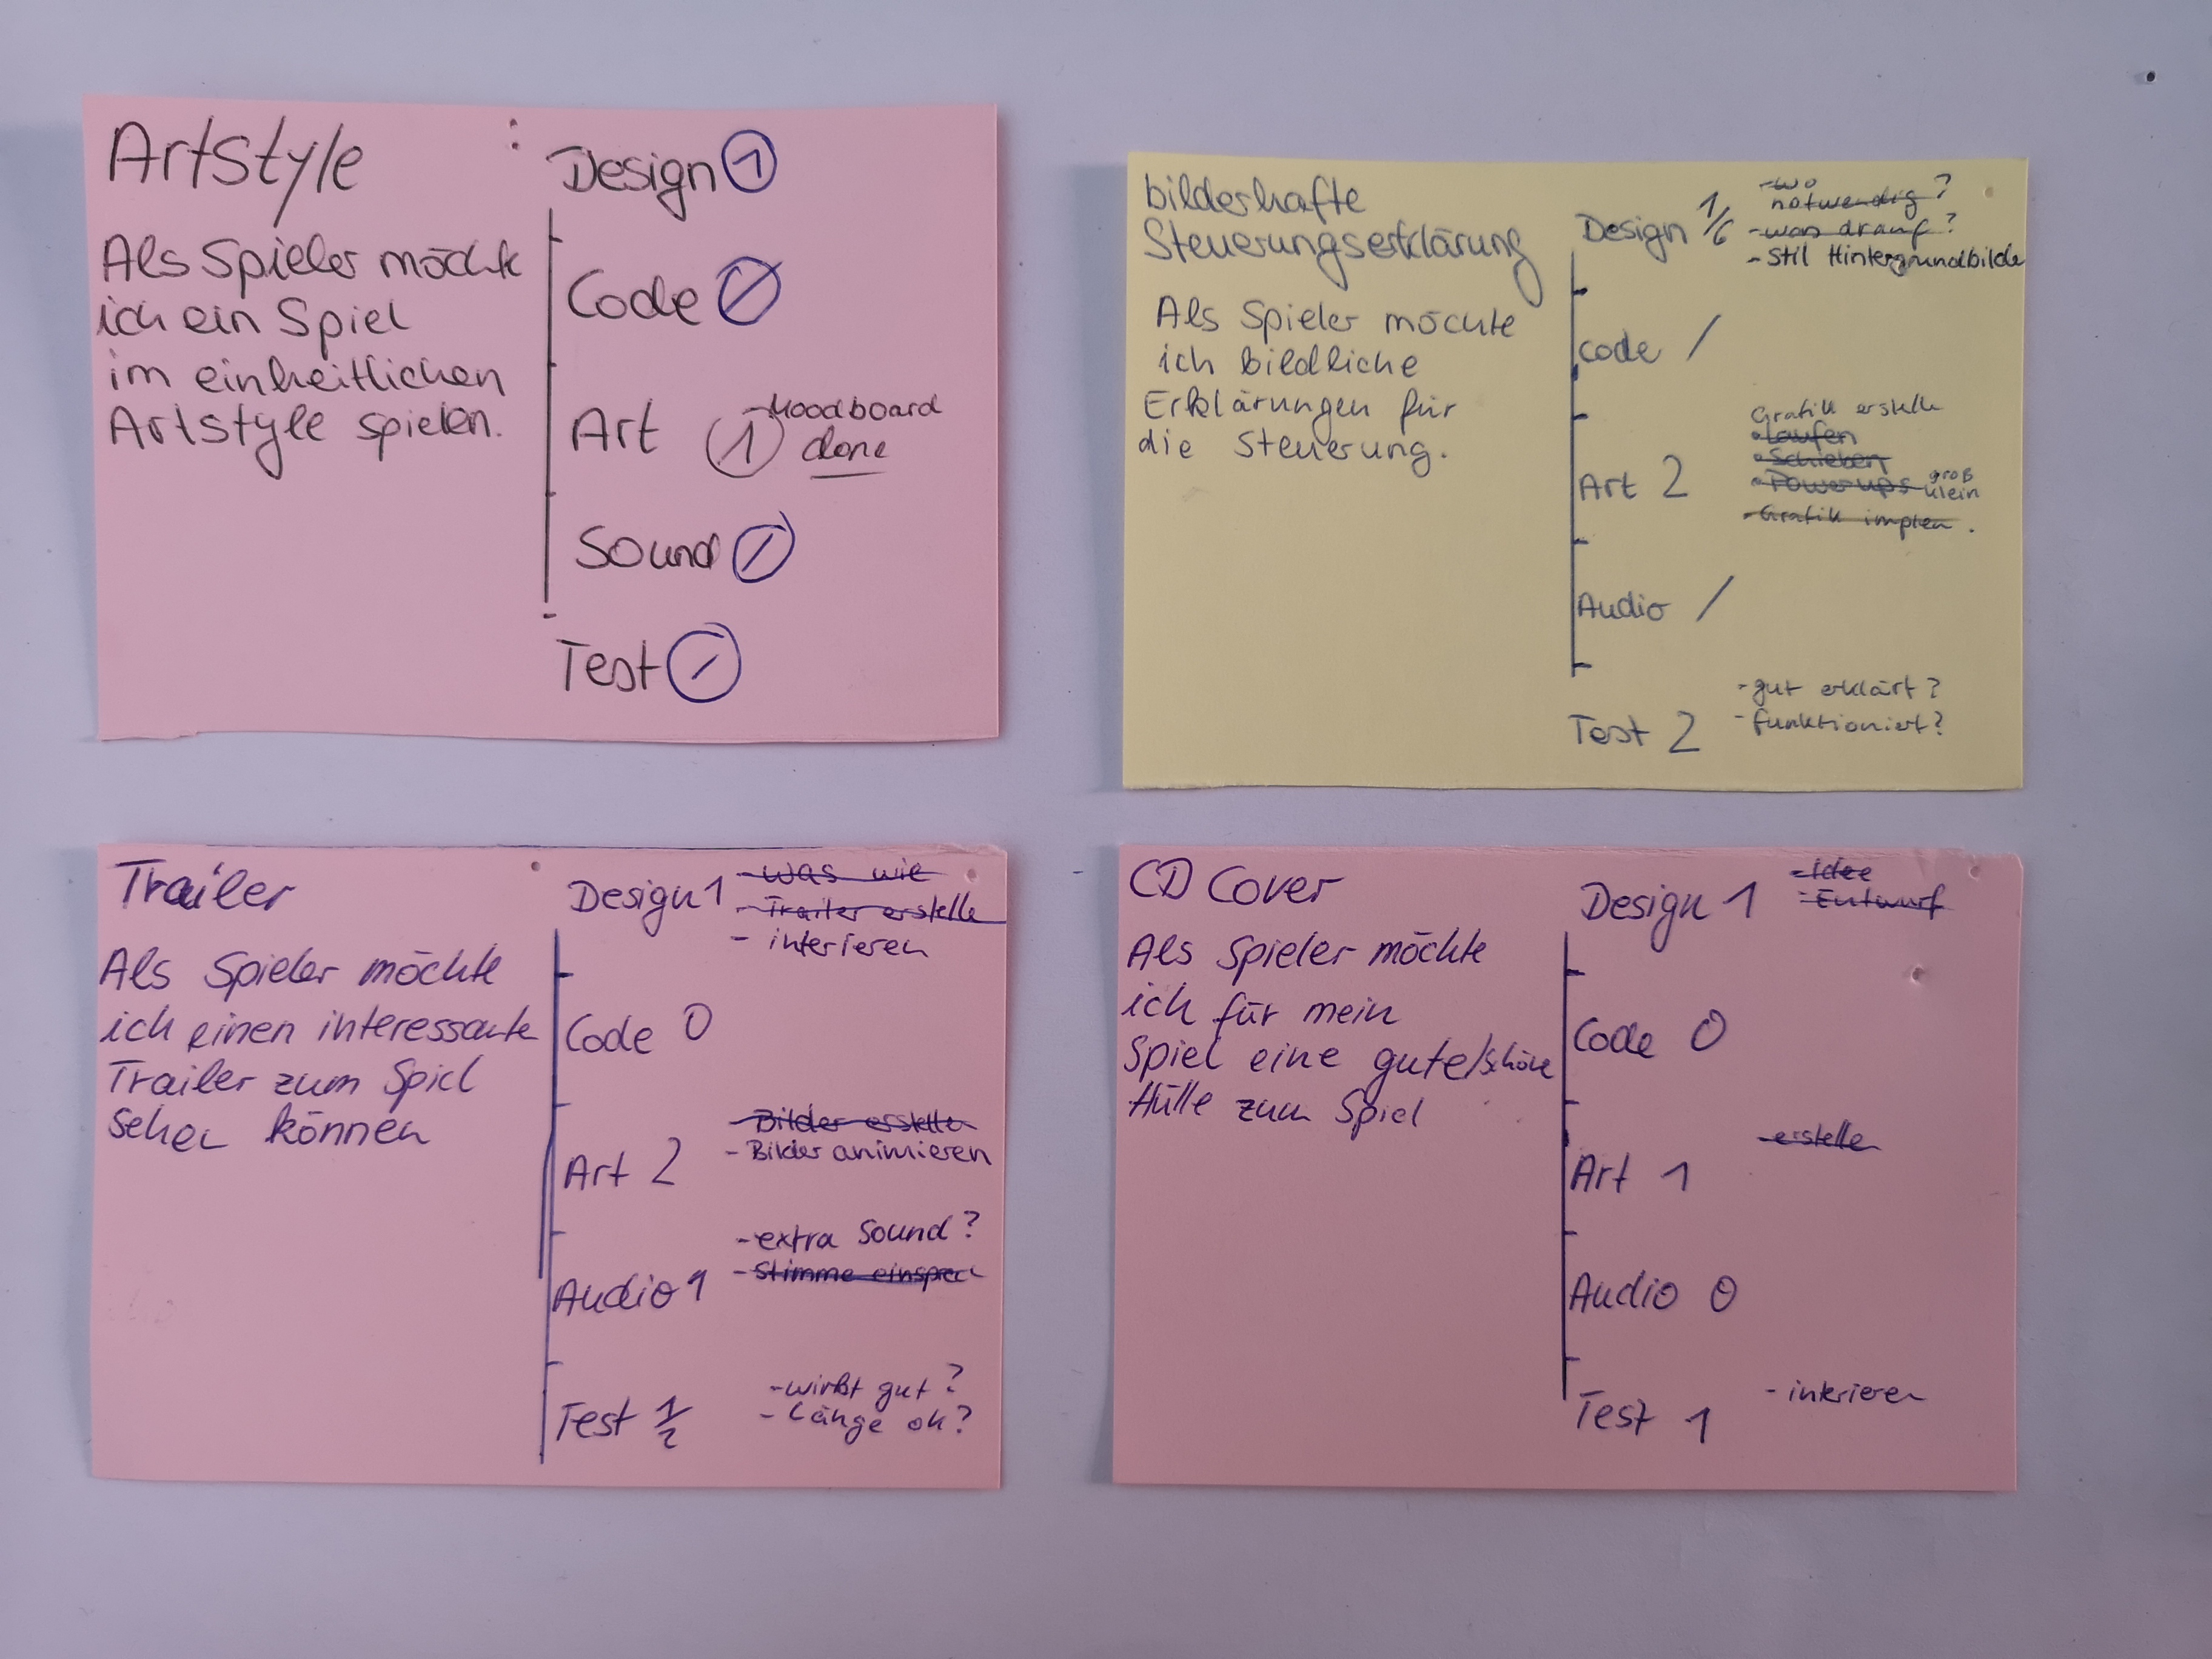 Artstyle
Als Spieler möchte
ich ein Spiel
im einheitlichen
Artstyle spielen.
Design 1
Code /
Art 1 - Moodboard
done
Sound /
Test /
bilderhafte
Steuerungserklärung
Als Spieler möchte
ich bildliche
Erklärungen für
die Steuerung.
Design 1/6
- wo
notwendig?
- was drauf?
- Stil Hintergrundbilde
Code /
Art 2
Grafik erstelle
• Laufen
• Schieben
• Powerups groß
klein
- Grafik implen.
Audio /
Test 2
- gut erklärt?
- funktioniert?
Trailer
Als Spieler möchte
ich einen interessante
Trailer zum Spiel
sehen können
Design 1
- was wie
- Trailer erstelle
- interieren
Code 0
Art 2
- Bilder erstelle
- Bilder animieren
Audio 1
- extra Sound?
- Stimme einsprec
Test 1/2
- wirkt gut?
- Länge ok?
CD Cover
Als Spieler möchte
ich für mein
Spiel eine gute/schöne
Hülle zum Spiel
Design 1
- Idee
- Entwurf
Code 0
Art 1
- erstelle
Audio 0
Test 1
- interieren